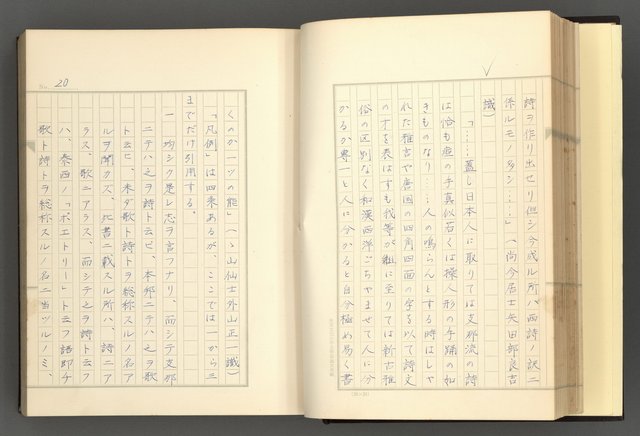 詩ヲ作リ出セリ但シ今成ル所ハ西詩ノ訳ニ
係ルモノ多シ……」(尚今居士矢田部良吉
識)
「……蓋し日本人に取りては支那流の詩
は恰も唖の手真似若くは操人形の手踊の如
きものなり……人の鳴らんとする時はしや
れた雅言や唐国の四角四面の字を以て詩文
の才を表はすも我等が組に至りては新古雅
俗の区別なく和漢西洋ごちやまぜて人に分
かるが専一と人に分かると自分極め易く書
No. 20
くのが一ツの能」(ゝ山仙士外山正一識)
「凡例」は四条あるが、ここでは一から三
までだけ引用する。
一 均シク是レ志ヲ言フナリ、而シテ支那
ニテハ之ヲ詩ト云ヒ、本邦ニテハ之ヲ歌
ト云ヒ、未ダ歌ト詩トヲ総称スルノ名ア
ルヲ聞カズ、此書ニ載スル所ハ、詩ニア
ラズ、歌ニアラズ、而シテ之ヲ詩ト云フ
ハ、泰西ノ「ポエトリー」ト云フ語即チ
歌ト詩トヲ総称スルノ名ニ当ツルノミ、